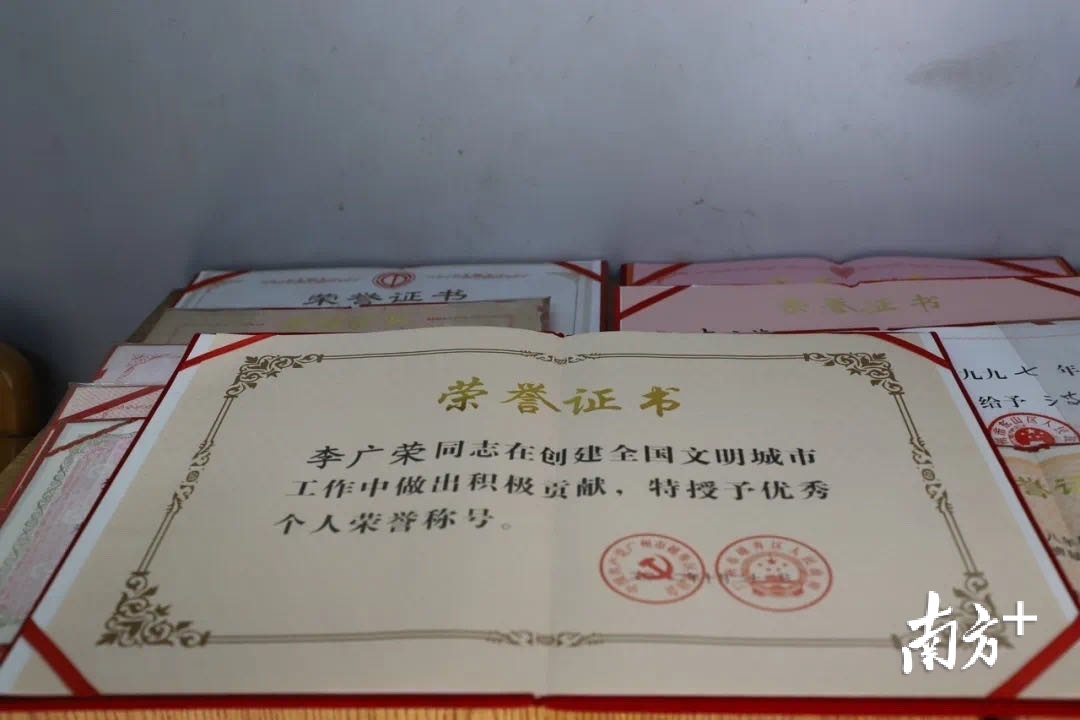 荣誉证书
荣誉证书
荣誉证书
李广荣同志在创建全国文明城市
工作中做出积极贡献，特授予优秀
个人荣誉称号。
九九七年
给予
南方+